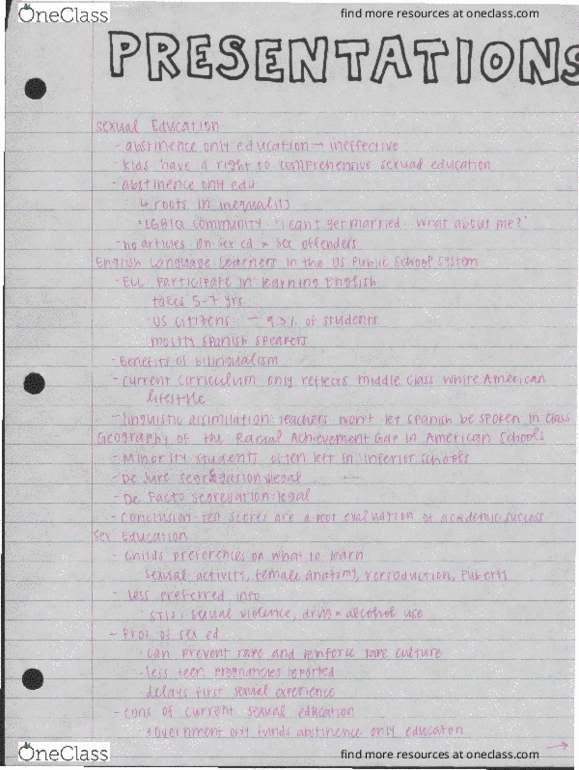 OneClass
find more resources at oneclass.com
PRESENTATIONS
Sexual Education
- abstinence only education → ineffective
- kids have a right to comprehensive sexual education
- abstinence only edu
↳ roots in inequality
• LGBTQ community - "I can't get married - what about me?"
- no articles on sex ed & sex offenders
English Language Learners in the US Public School System
- ELL participate in learning English
takes 5-7 yrs.
US citizens - 9.3% of students
mostly spanish speakers
- Benefits of bilingualism
- current curriculum only reflects middle class white American
lifestyle
- linguistic assimilation: teachers won't let spanish be spoken in class
Geography of the Racial Achievement Gap in American Schools
- Minority students often left in inferior schools
- De Jure segregation: illegal
- De Facto segregation: legal
- conclusion: test scores are a evaluation of academic success
Sex Education
- childs preferences on what to learn
• sexual activity, female anatomy, reproduction, puberty
- less preferred info
• STIs, sexual violence, drug & alcohol use
- Pros of sex ed
• can prevent rape and reinforce rape culture
• less teen pregnancies reported
• delays first sexual experience
- cons of current sexual education
• Government only funds abstinence only education
→
OneClass
find more resources at oneclass.com